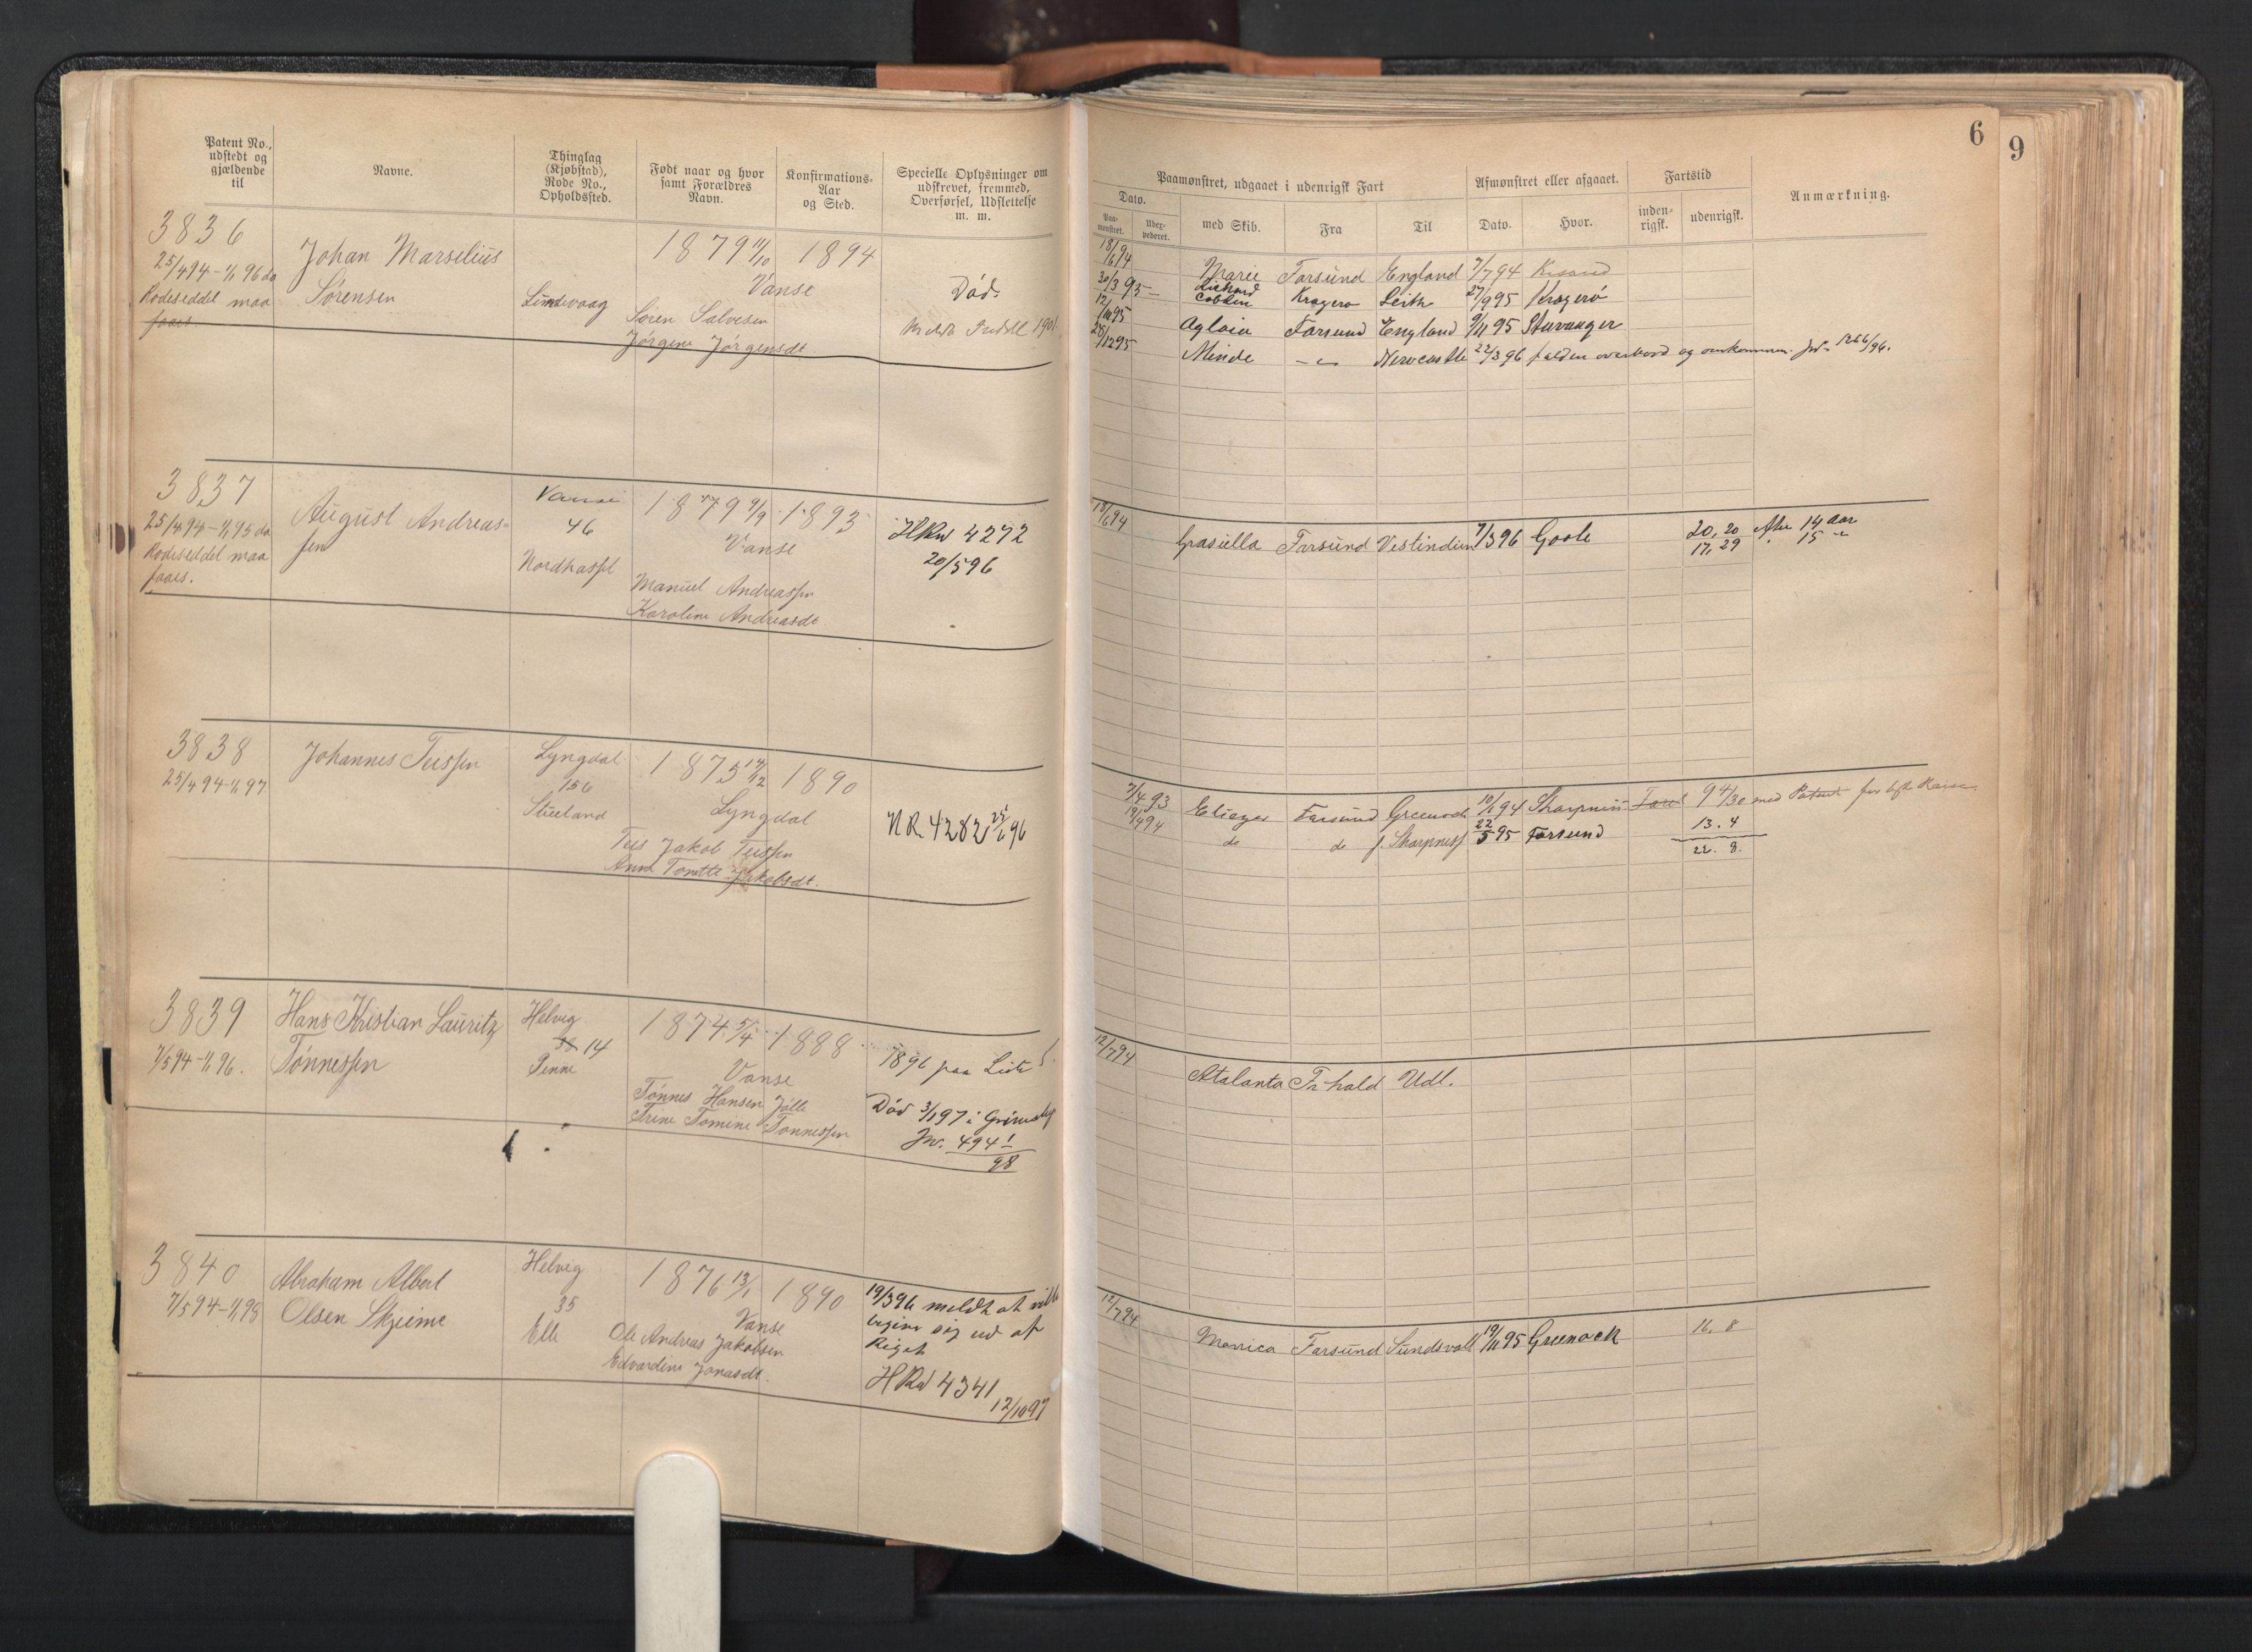 Patent No.,
udstedt og
gjældende
til
Navne.
Thinglag
(Kjøbstad),
Rode No.,
Opholdssted.
Født naar og hvor
samt Forældres
Navn.
Konfirmations-
Aar
og Sted.
Specielle Oplysninger om
udskrevet, fremmed,
Overførsel, Udslettelse
m. m.
3836
25/4 94 - 1/1 96 da
Rodeseddel maa
faaes.
Johan Marselius
Sørensen
Lindevaag
1879 11/10
Vanse
Søren Salvesen
Jørgine Jørgensdt.
1894
Død.
1901
3837
25/4 94 - 1/1 95 da
Rodeseddel maa
faaes.
August Andreas-
sen
Vanse
46
Nordhassel
1879 9/9
Vanse
Manuel Andreassen
Karoline Andreasdt
1893
HRw 4272
20/5 96
3838
25/4 94 - 1/1 97
Johannes Teissen
Lyngdal
156
Stueland
1875 17/12
Lyngdal
Teis Jakob Teissen
Anna Tonette Jakobsdt.
1890
NR. 4282 22/6 96
3839
7/5 94 - 1/1 96.
Hans Kristian Lauritz
Tønnessen
Helvig
14
Penne
1874 5/4
Vanse
Tønnes Hansen Jølle
Trine Tomine Tønnessen
1888
1896 paa Liste S.
Død 3/1 97 i Grimsby
Jw. 494 1/98
3840
7/5 94 - 1/1 98
Abraham Albert
Olsen Skjeime
Helvig
35
Elle
1876 13/1
Vanse
Ole Andreas Jakobsen
Edvardine Jonasdt.
1890
19/3 96 meldt at ville
begive sig ud af
Riget
HRw 4341
12/10 97
6
9
Paamønstret, udgaaet i udenrigsk Fart
Afmønstret eller afgaaet.
Fartstid
Anmærkning.
Dato.
Paa-
mønstret.
Udex-
pederet.
med Skib.
Fra
Til
Dato.
Hvor.
inden-
rigsk.
udenrigsk.
18/6 94 Marie Farsund England 7/7 94
30/3 95 - Richard Cobden Kragerø Leith 27/9 95 Kragerø
12/10 95 Aglaia Farsund England 9/11 95 Stavanger
28/12 95 Minde - " - Newcastle 22/3 96 falden overbord og omkommen. Jw. 1266/96.
18/6 94 Grasiella Farsund Vestindien 7/3 96 Goole 20, 20 14 aar
17, 29 15 "
7/4 93 Eliezer Farsund Greenock 10/1 94 Sharpness 9 4/30 med Patent
19/4 94 do do f. Sharpness 22/5 95 Farsund 13. 4
22. 8.
12/7 94 Atalanta Fr.hald Udl.
12/7 94 Monica Farsund Sundsvall 19/11 95 Greenock 16. 8